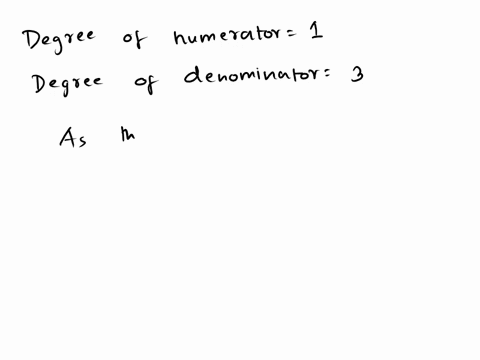 Degree of numerator = 1
Degree of denominator = 3
As th